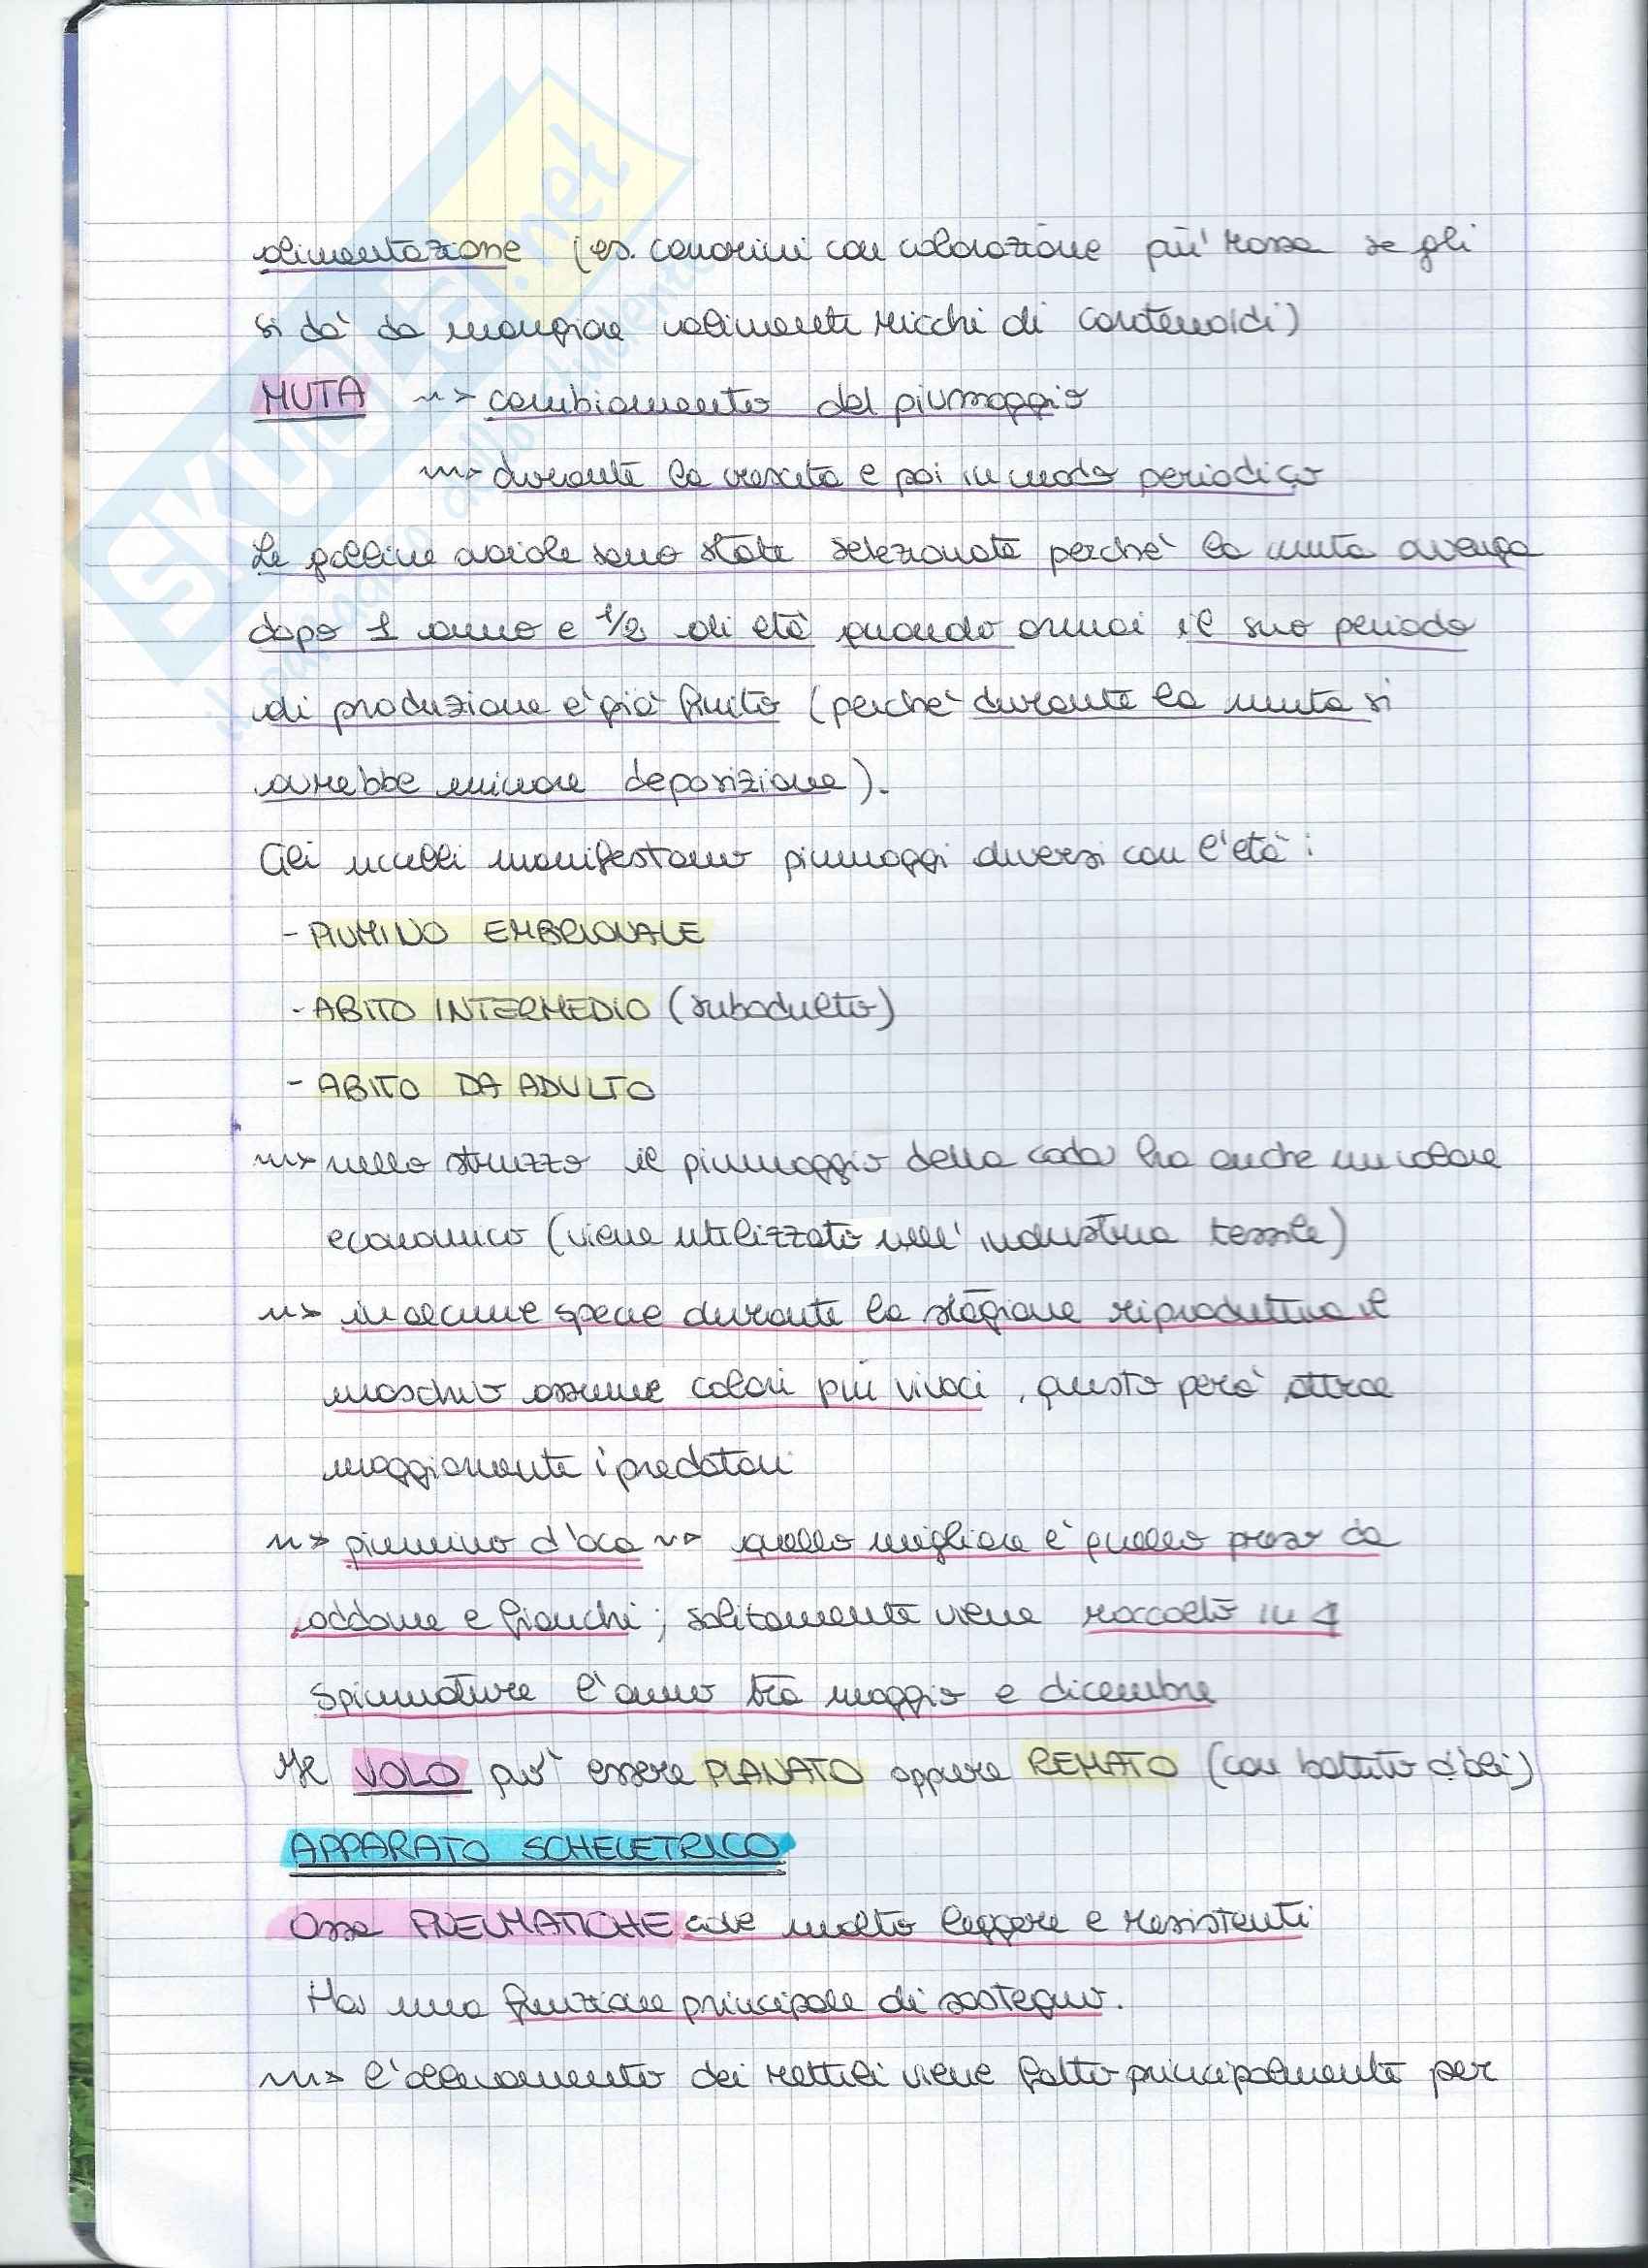 alimentazione (es. canarini con colorazione più rossa se gli
si dà da mangiare alimenti ricchi di carotenoidi)
MUTA ~> cambiamento del piumaggio
~> durante la crescita e poi in modo periodico
Le galline ovaiole sono state selezionate perchè la muta avenga
dopo 1 anno e 1/2 di età quando ormai il suo periodo
di produzione è già finito (perchè durante la muta si
avrebbe minore deposizione).
Gli uccelli manifestano piumaggi diversi con l'età:
- PIUMINO EMBRIONALE
- ABITO INTERMEDIO (subadulto)
- ABITO DA ADULTO
~> nello struzzo il piumaggio della coda ha anche un valore
economico (viene utilizzato nell'industria tessile)
~> in alcune specie durante la stagione riproduttiva il
maschio assume colori più vivaci, questo però attrae
maggiormente i predatori
~> piumino d'oca ~> quello migliore è quello preso da
addome e fianchi; solitamente viene raccolto in 4
spiumature l'anno tra maggio e dicembre
Il VOLO può essere PLANATO oppure REMATO (con battito d'ali)
APPARATO SCHELETRICO
Ossa PNEUMATICHE cioè molto leggere e resistenti
Ha una funzione principale di sostegno.
~> l'allevamento dei rettili viene fatto principalmente per
SKUOLA.net